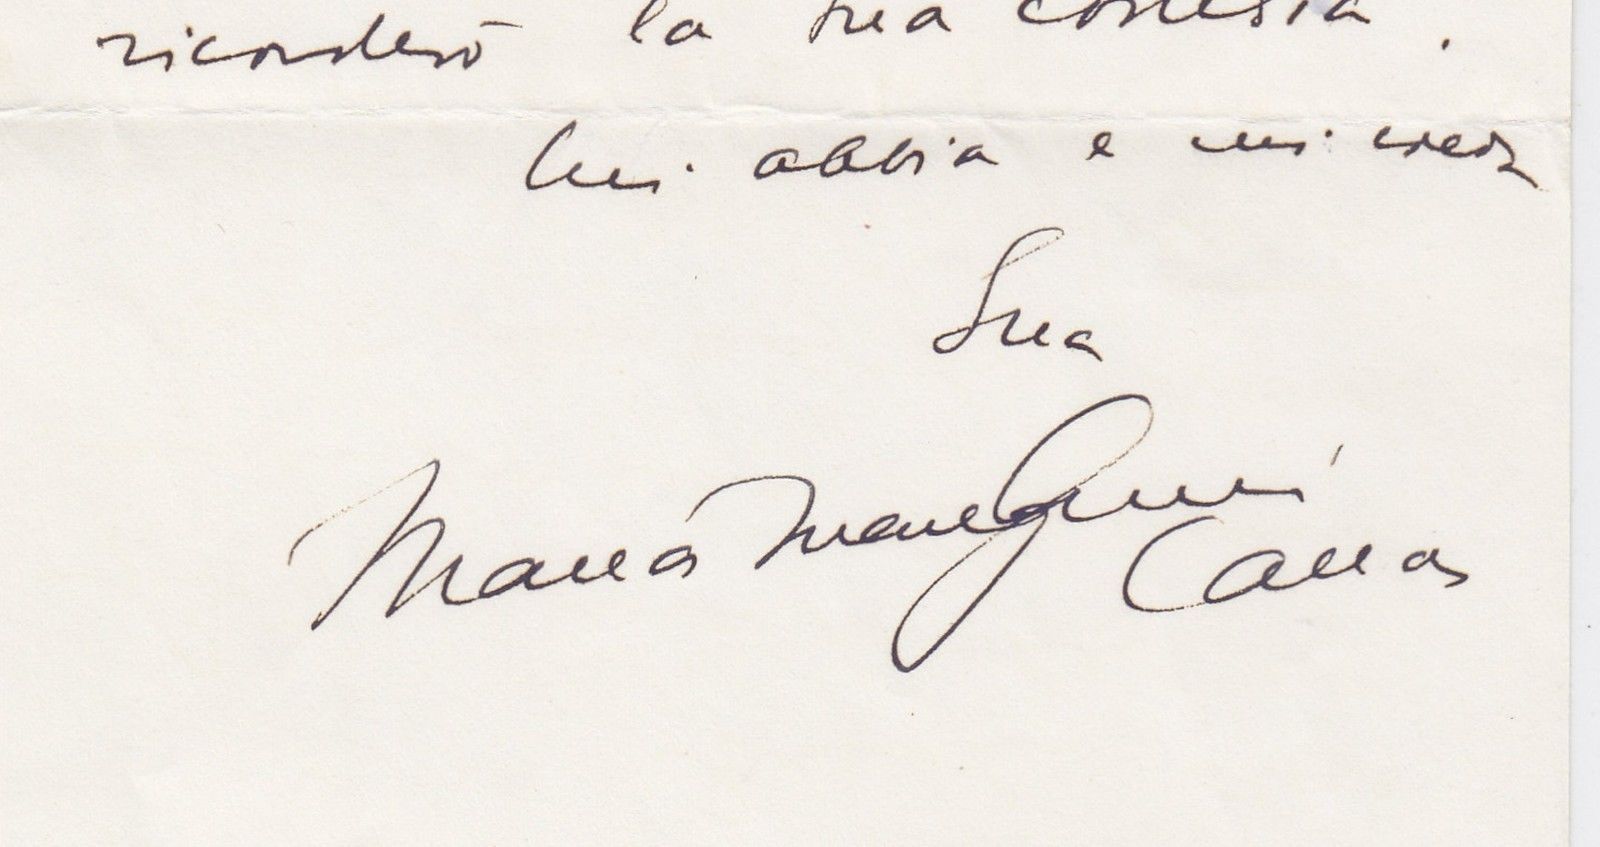 ricorderò la sua cortesia.
Mi abbia e mi creda
Sua
Maria Meneghini
Callas